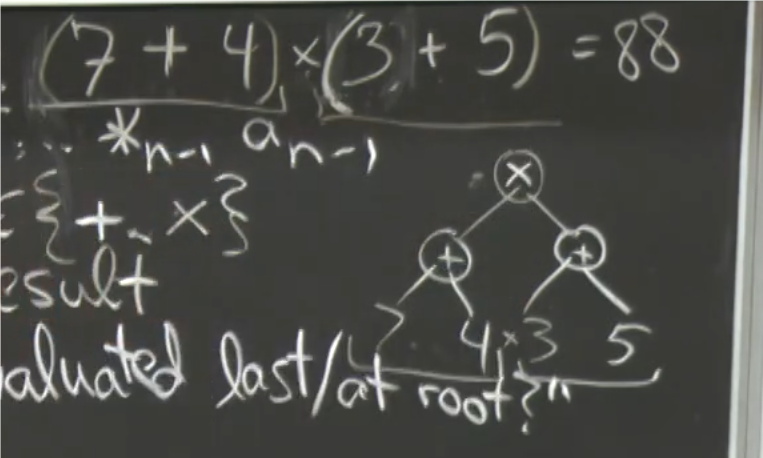 (7 + 4) × (3 + 5) = 88
... *n-1 an-1
{+, ×}
esult
aluated last/at root?"
×
+ +
7 4 × 3 5